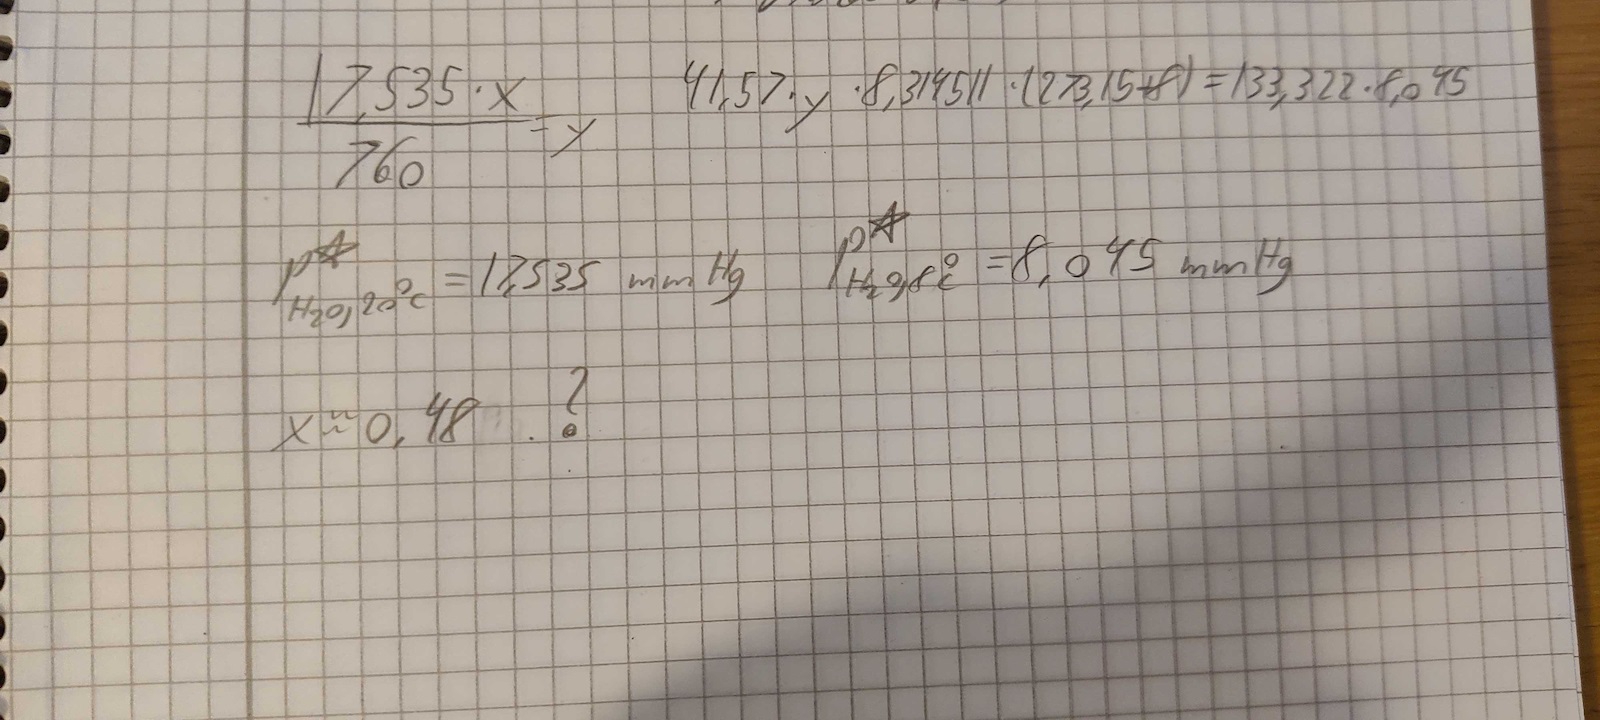 17,535·x / 760 = y    41,57·y·8,314511·(273,15+8)=133,322·8,045
p☆ H2O, 20°C = 17,535 mmHg    p☆ H2O, 8°C = 8,045 mmHg
x≈0,48 ?